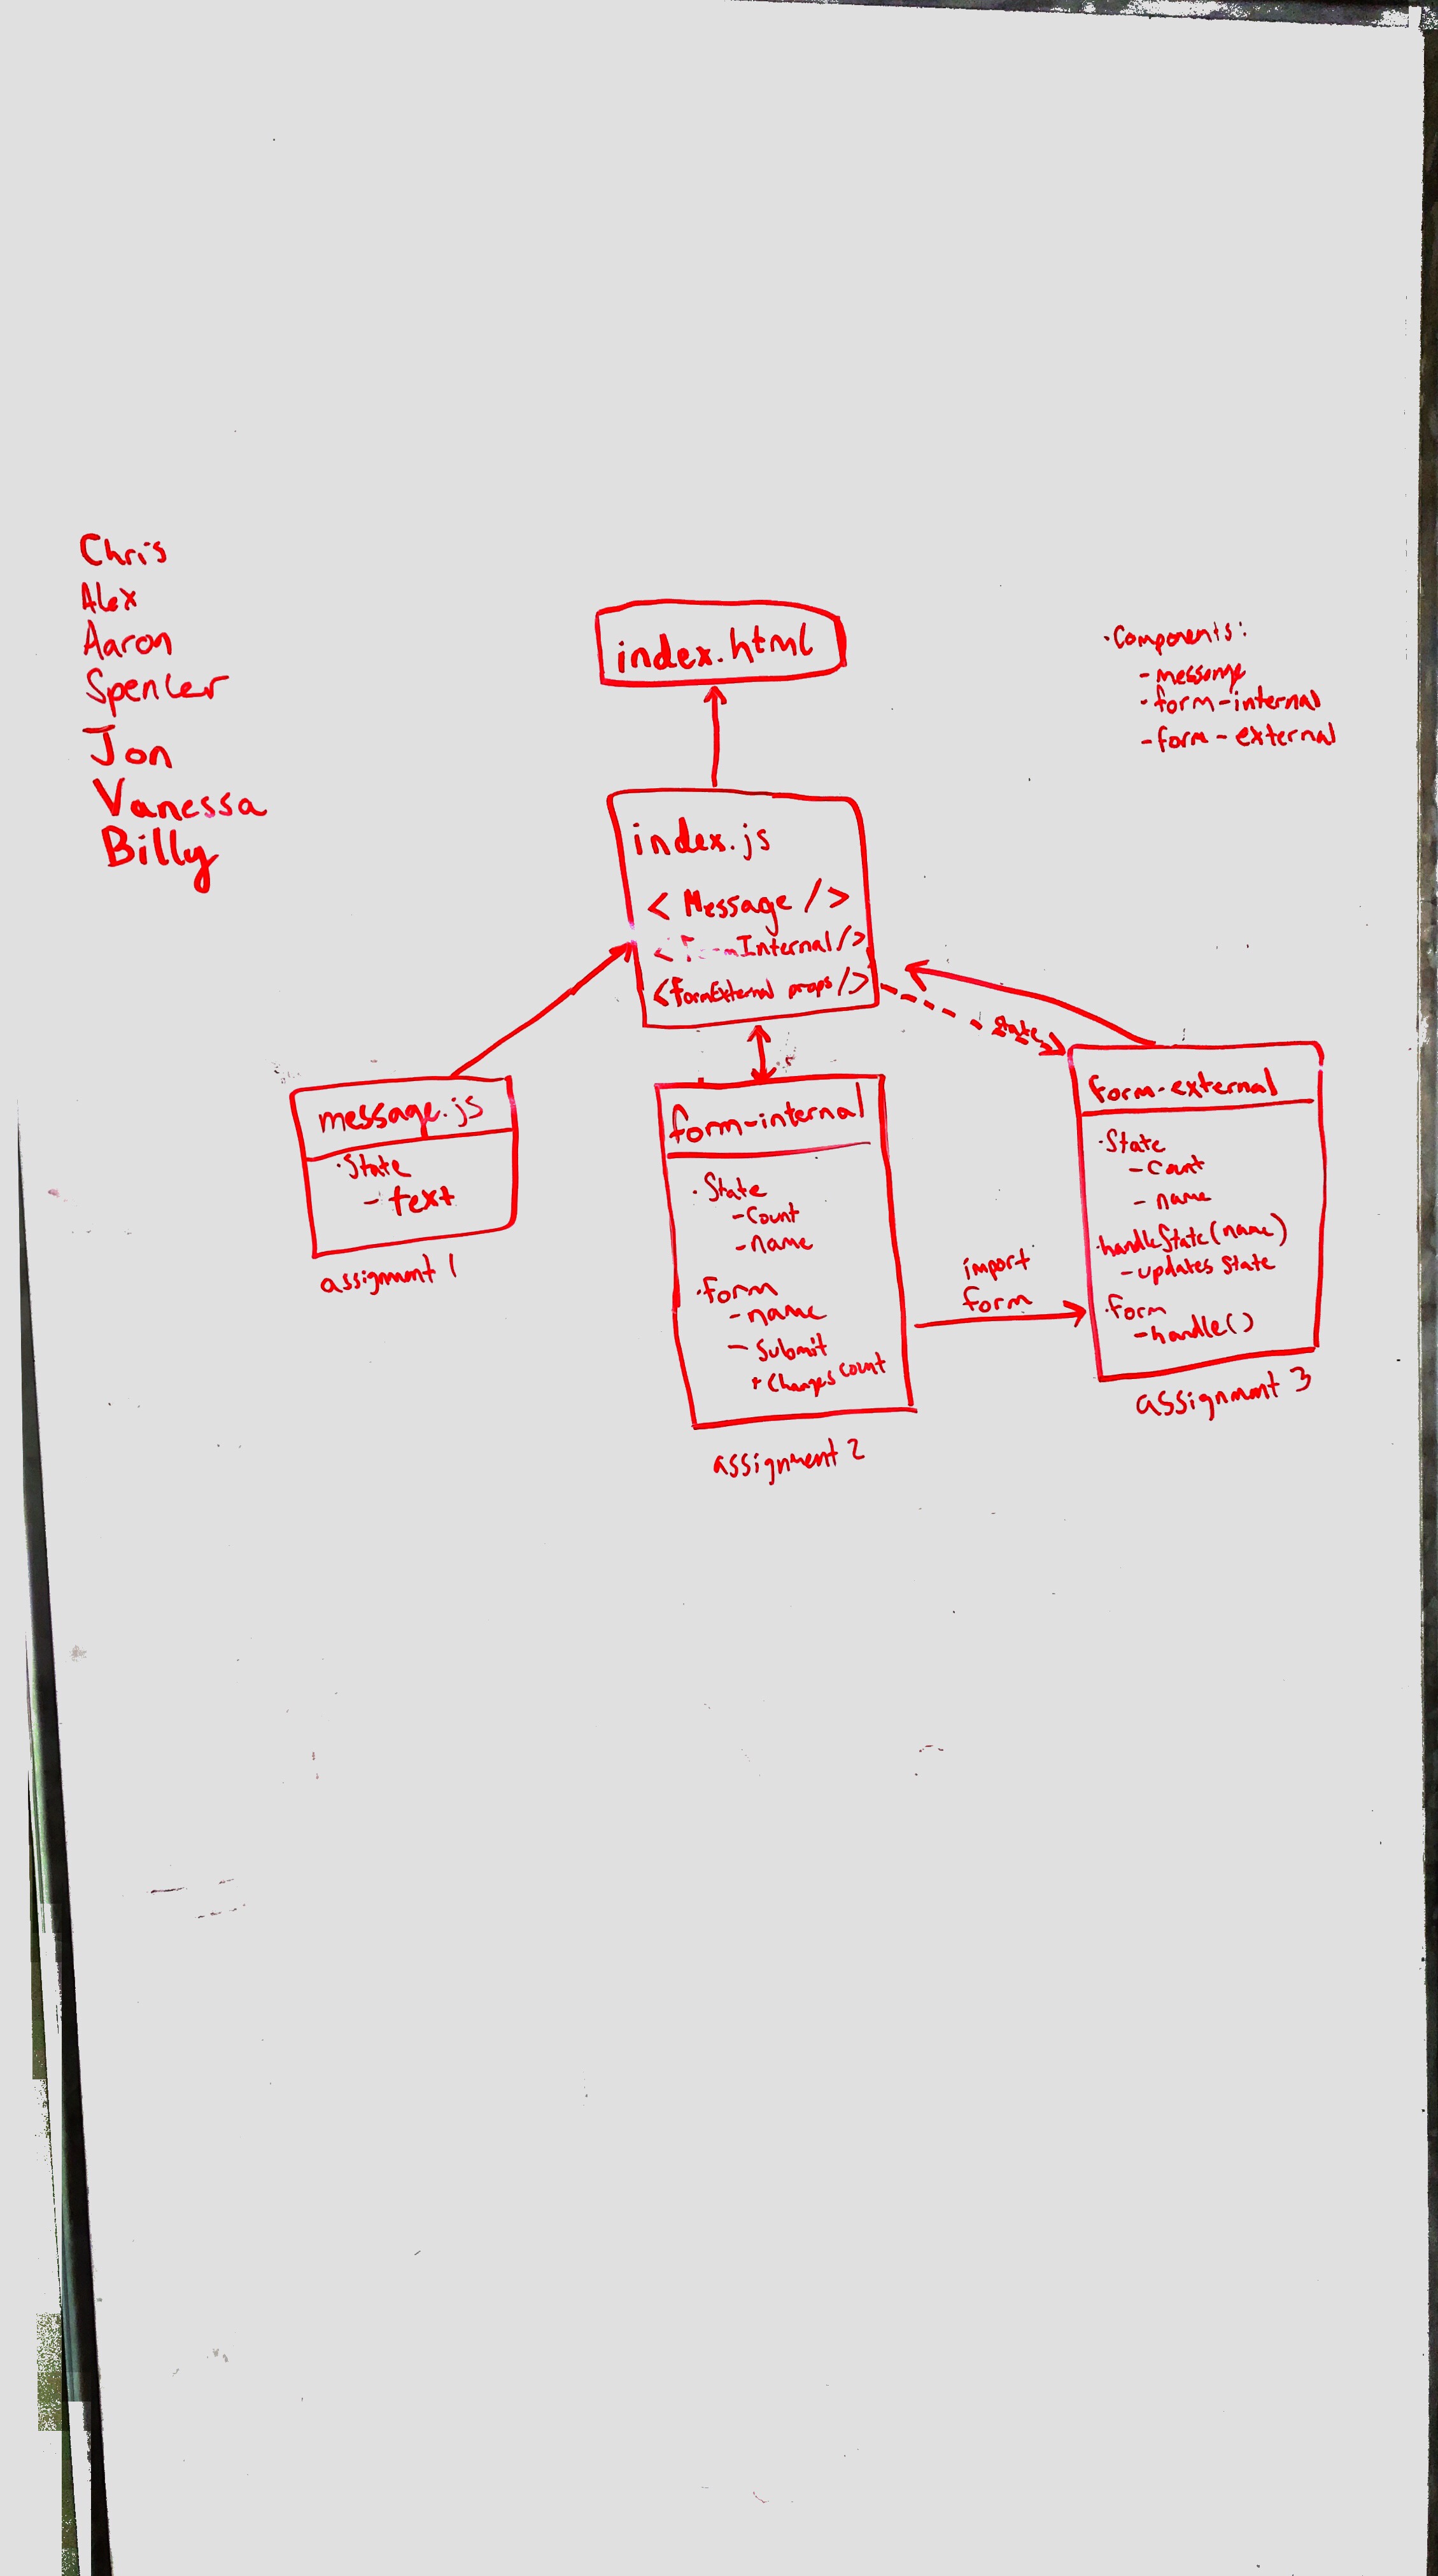 Chris
Alex
Aaron
Spencer
Jon
Vanessa
Billy
index.html
·Components:
- message
- form-internal
- form-external
index.js
< Message />
< FormInternal/>
<formExternal props/>
state
message.js
·State
- text
assignment 1
form-internal
·State
- Count
- name
·form
- name
- Submit
+ Changes count
assignment 2
import
form
form-external
·State
- Count
- name
·handleState(name)
- updates state
·form
- handle()
assignment 3